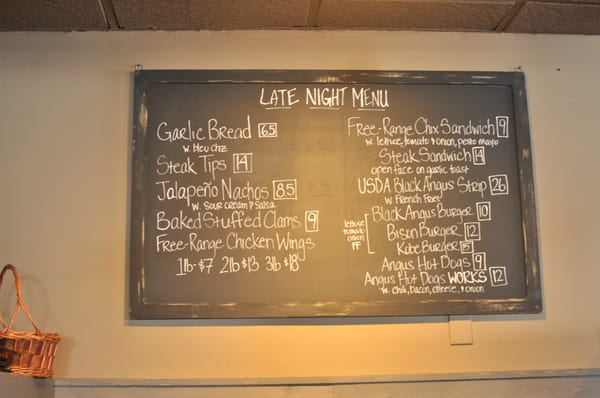 LATE NIGHT MENU
Garlic Bread 6.5
w. Bleu Chz
Steak Tips 14
Jalapeño Nachos 8.5
w. Sour cream & Salsa
Baked Stuffed Clams 9
Free-Range Chicken Wings
1lb-$7 2lb $13 3lb $18
Free-Range Chix Sandwich 9
w. lettuce, tomato & onion, pesto mayo
Steak Sandwich 14
open face on garlic toast
USDA Black Angus Strip 26
w. French Fries
lettuce
tomato
onion
FF
Black Angus Burger 10
Bison Burger 12
Kobe Burger 15
Angus Hot Dogs 9
Angus Hot Dogs WORKS 12
w. chili, bacon, cheese, & onion